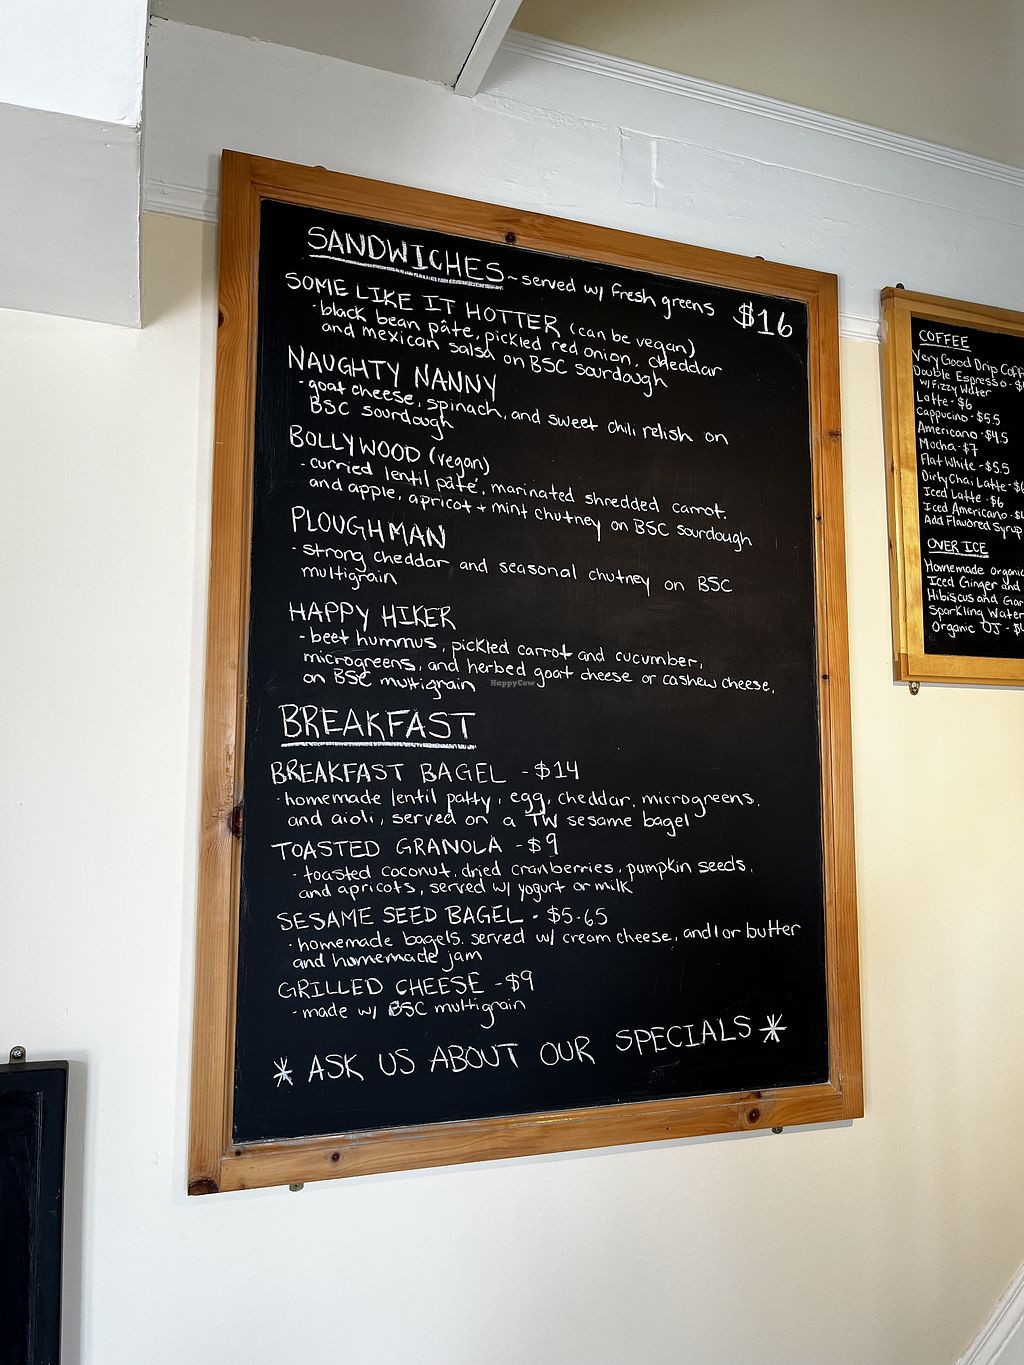 SANDWICHES ~ served w/ fresh greens $16
SOME LIKE IT HOTTER (can be vegan)
· black bean pâte, pickled red onion, cheddar
and mexican salsa on BSC sourdough
NAUGHTY NANNY
- goat cheese, spinach, and sweet chili relish on
BSC sourdough
BOLLYWOOD (vegan)
- curried lentil pâté, marinated shredded carrot,
and apple, apricot + mint chutney on BSC sourdough
PLOUGHMAN
- strong cheddar and seasonal chutney on BSC
multigrain
HAPPY HIKER
- beet hummus, pickled carrot and cucumber,
microgreens, and herbed goat cheese or cashew cheese,
on BSC multigrain
HappyCow
BREAKFAST
BREAKFAST BAGEL - $14
· homemade lentil patty, egg, cheddar, microgreens,
and aioli, served on a TW sesame bagel
TOASTED GRANOLA - $9
- toasted coconut, dried cranberries, pumpkin seeds,
and apricots, served w/ yogurt or milk
SESAME SEED BAGEL - $5.65
· homemade bagels, served w/ cream cheese, and/or butter
and homemade jam
GRILLED CHEESE - $9
- made w/ BSC multigrain
* ASK US ABOUT OUR SPECIALS *
COFFEE
Very Good Drip
Double Espresso -
w/Fizzy Water
Latte - $6
Cappucino - $5.5
Americano - $4.5
Mocha - $7
Flat White - $5.5
Dirty Chai Latte -
Iced Latte - $6
Iced Americano -
Add Flavored Syrup
OVER ICE
Homemade Organic
Iced Ginger and
Hibiscus and
Sparkling Water
Organic OJ -